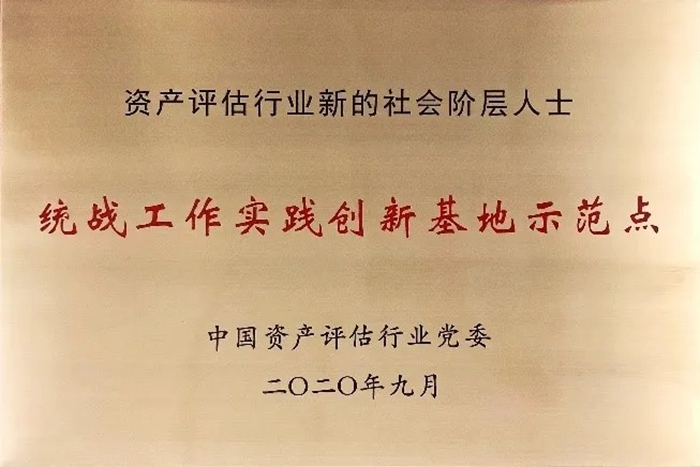 资产评估行业新的社会阶层人士
统战工作实践创新基地示范点
中国资产评估行业党委
二〇二〇年九月